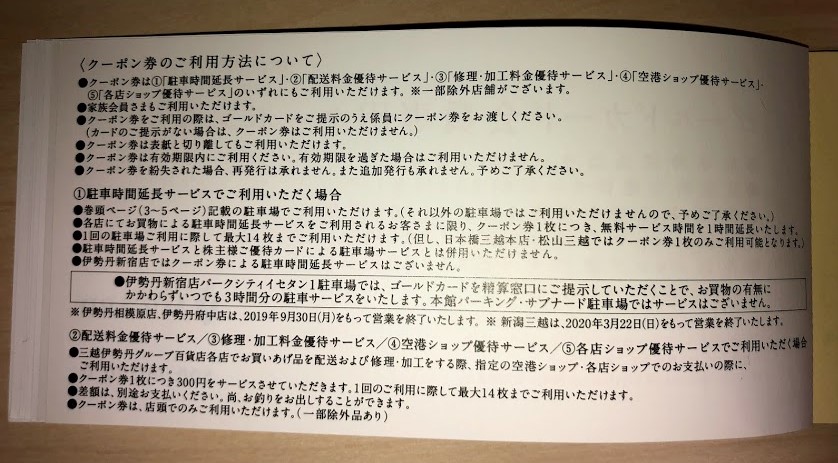 〈クーポン券のご利用方法について〉
●クーポン券は①「駐車時間延長サービス」・②「配送料金優待サービス」・③「修理・加工料金優待サービス」・④「空港ショップ優待サービス」・
⑤「各店ショップ優待サービス」のいずれにもご利用いただけます。※一部除外店舗がございます。
●家族会員さまもご利用いただけます。
●クーポン券をご利用の際は、ゴールドカードをご提示のうえ係員にクーポン券をお渡しください。
(カードのご提示がない場合は、クーポン券はご利用いただけません。)
●クーポン券は表紙と切り離してもご利用いただけます。
●クーポン券は有効期限内にご利用ください。有効期限を過ぎた場合はご利用いただけません。
●クーポン券を紛失された場合、再発行は承れません。また追加発行も承れません。予めご了承ください。
①駐車時間延長サービスでご利用いただく場合
●巻頭ページ(3〜5ページ)記載の駐車場でご利用いただけます。(それ以外の駐車場ではご利用いただけませんので、予めご了承ください。)
●各店にてお買物による駐車時間延長サービスをご利用されるお客さまに限り、クーポン券1枚につき、無料サービス時間を1時間延長いたします。
●1回の駐車場ご利用に際して最大14枚までご利用いただけます。(但し、日本橋三越本店・松山三越ではクーポン券1枚のみご利用可能となります。)
●駐車時間延長サービスと株主様ご優待カードによる駐車場サービスとは併用いただけません。
●伊勢丹新宿店ではクーポン券による駐車時間延長サービスはございません。
●伊勢丹新宿店パークシティイセタン1駐車場では、ゴールドカードを精算窓口にご提示していただくことで、お買物の有無に
かかわらずいつでも3時間分の駐車サービスをいたします。本館パーキング・サブナード駐車場ではサービスはございません。
※伊勢丹相模原店、伊勢丹府中店は、2019年9月30日(月)をもって営業を終了いたします。 ※新潟三越は、2020年3月22日(日)をもって営業を終了いたします。
②配送料金優待サービス/③修理・加工料金優待サービス/④空港ショップ優待サービス/⑤各店ショップ優待サービスでご利用いただく場合
●三越伊勢丹グループ百貨店各店でお買いあげ品を配送および修理・加工をする際、指定の空港ショップ・各店ショップでのお支払いの際に、
ご利用いただけます。
●クーポン券1枚につき300円をサービスさせていただきます。1回のご利用に際して最大14枚までご利用いただけます。
●差額は、別途お支払いください。尚、お釣りをお出しすることができます。
●クーポン券は、店頭でのみご利用いただけます。(一部除外品あり)